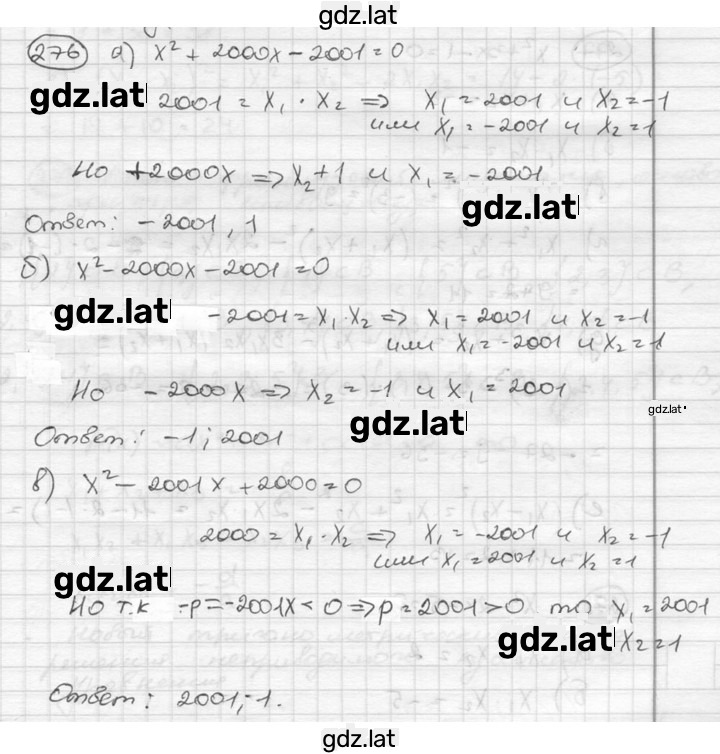 gdz.lat
276 а) x² + 2000x - 2001 = 0
gdz.lat 2001 = x₁ · x₂ => x₁ = 2001 и x₂ = -1
или x₁ = -2001 и x₂ = 1
Но +2000x => x₂+1 и x₁ = -2001
gdz.lat
Ответ: -2001, 1
б) x² - 2000x - 2001 = 0
gdz.lat -2001 = x₁ · x₂ => x₁ = 2001 и x₂ = -1
или x₁ = -2001 и x₂ = 1
Но -2000x => x₂ = -1 и x₁ = 2001
gdz.lat
gdz.lat
Ответ: -1; 2001
в) x² - 2001x + 2000 = 0
2000 = x₁ · x₂ => x₁ = -2001 и x₂ = -1
или x₁ = 2001 и x₂ = 1
gdz.lat
Но т.к -p = -2001x < 0 => p = 2001 > 0 то x₁ = 2001
gdz.lat x₂ = 1
Ответ: 2001; -1.
gdz.lat